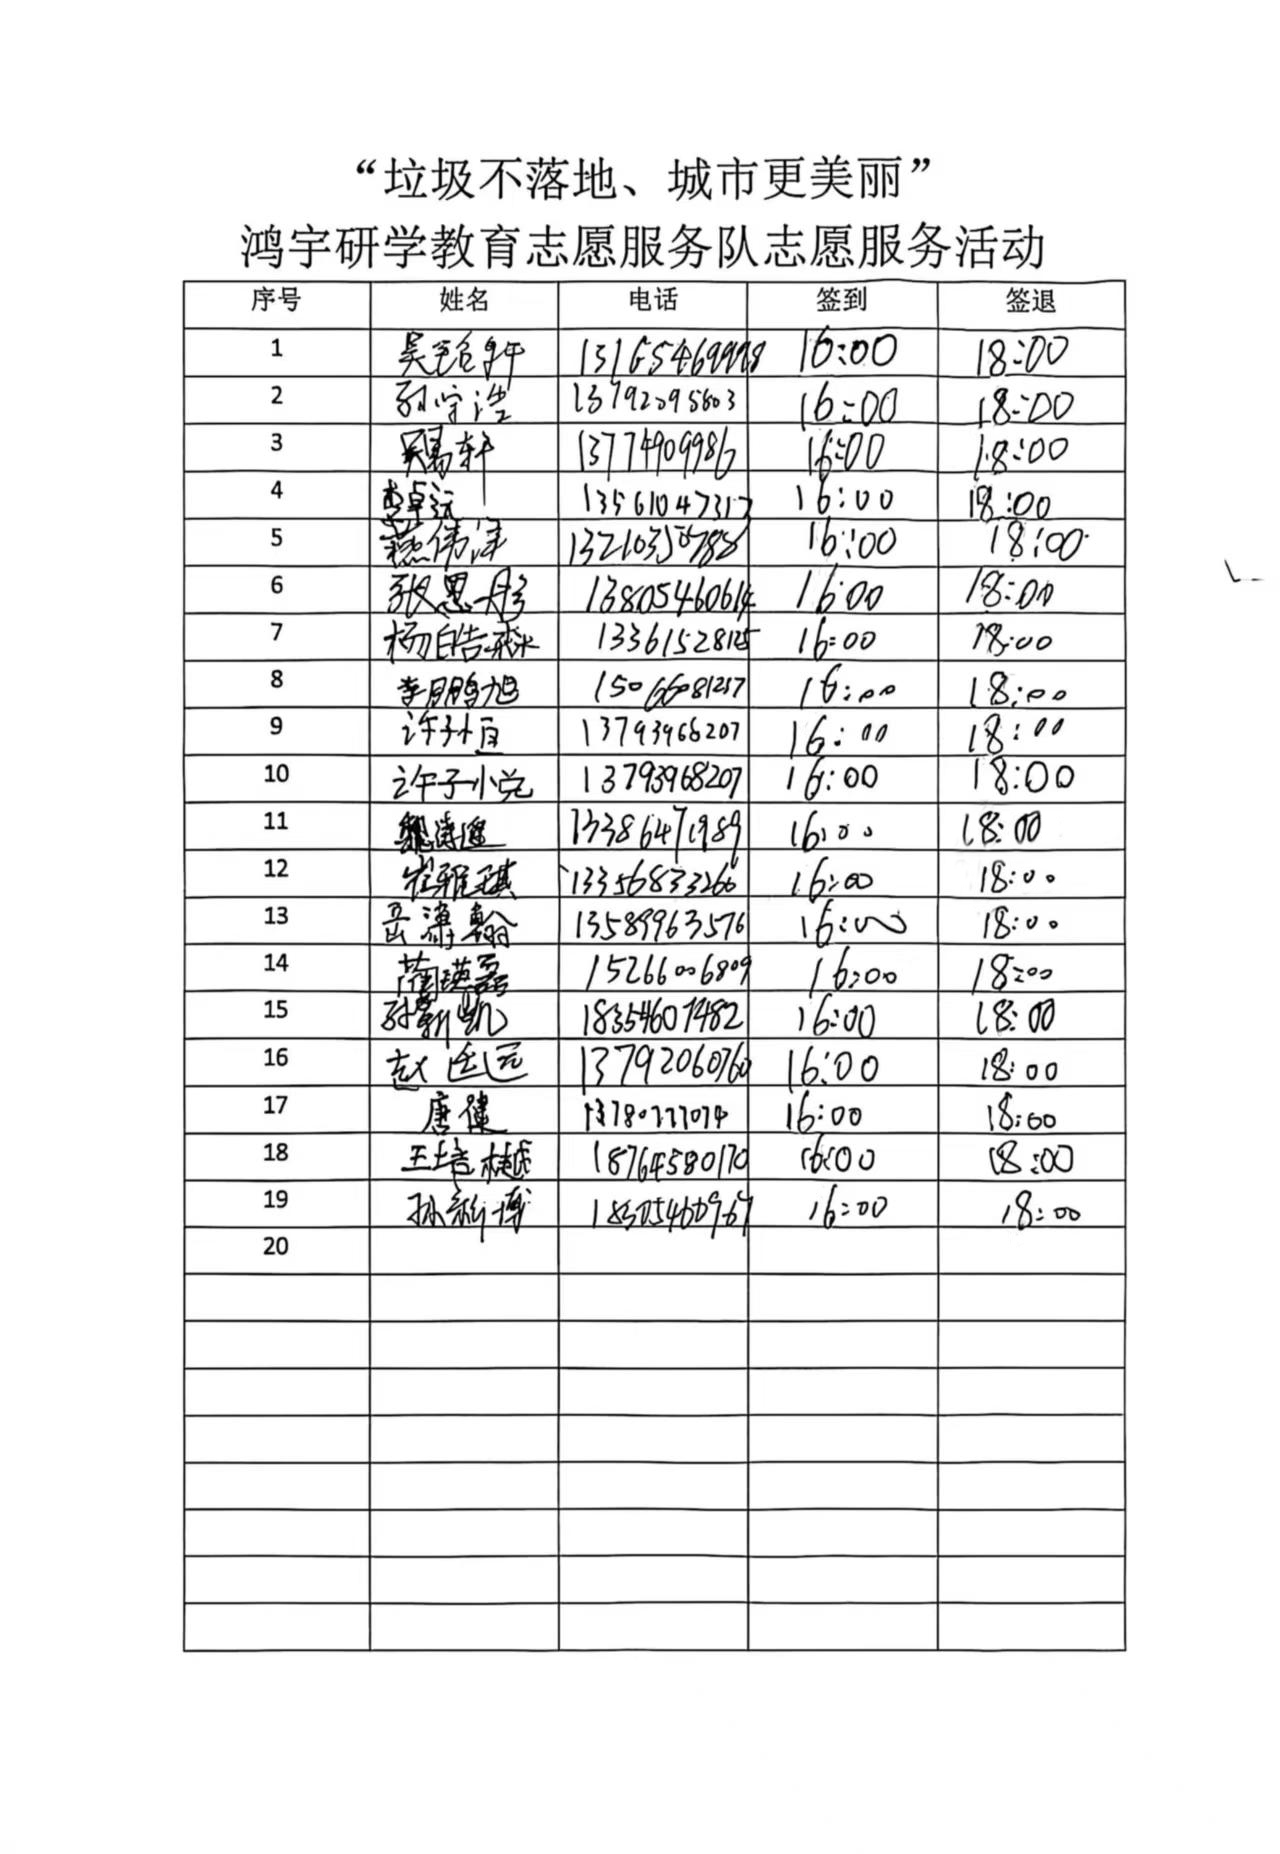 “垃圾不落地、城市更美丽”
鸿宇研学教育志愿服务队志愿服务活动
序号 姓名 电话 签到 签退
1 16:00 18:00
2 孙宇浩 13792095803 16:00 18:00
3 轩 13774909986 16:00 18:00
4 李卓远 13561047317 16:00 18:00
5 燕伟洋 13210356788 16:00 18:00
6 张恩彤 13805460614 16:00 18:00
7 杨皓淼 13361528125 16:00 18:00
8 李鹏旭 15066081217 16:00 18:00
9 许子恒 13793968207 16:00 18:00
10 许子悦 13793968207 16:00 18:00
11 魏 13386471989 16:00 18:00
12 崔雅琪 13356833266 16:00 18:00
13 岳溥翰 13589963576 16:00 18:00
14 蔺瑛磊 15266006809 16:00 18:00
15 孙新凯 18354607482 16:00 18:00
16 赵岳远 13792060760 16:00 18:00
17 唐健 13780777074 16:00 18:00
18 王培樾 18764580170 16:00 18:00
19 孙新博 16:00 18:00
20